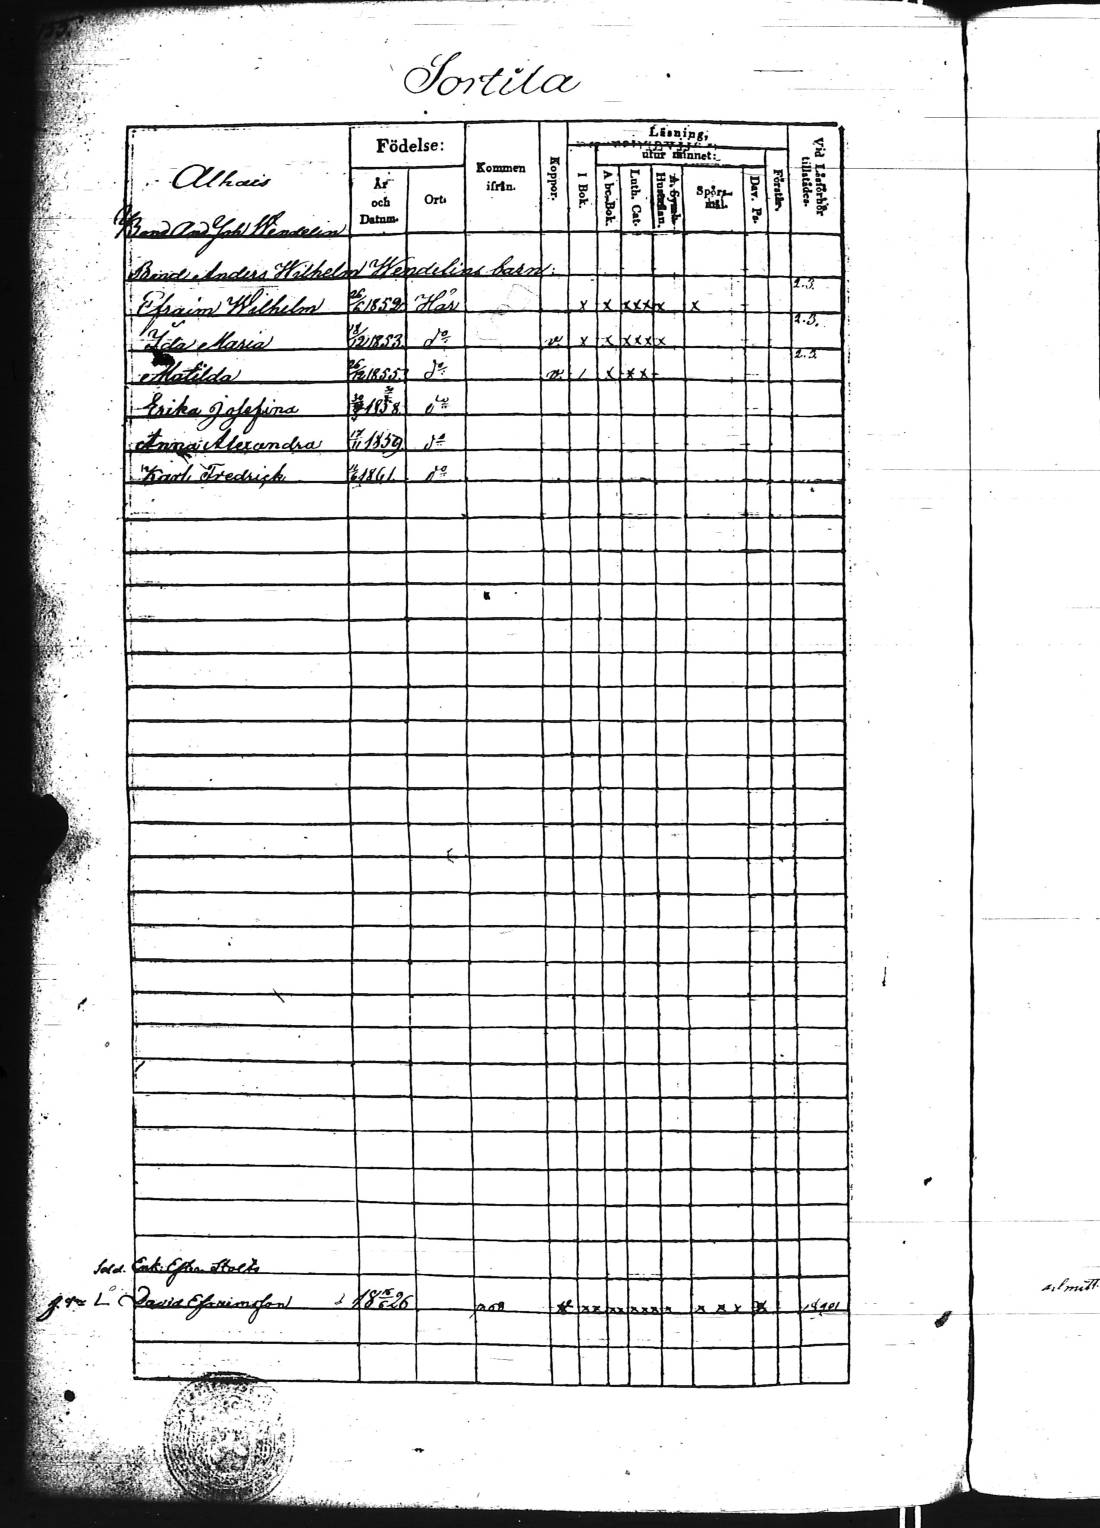 Sortila
Alhais
Födelse:
År och Datum.
Ort.
Kommen ifrån.
Koppor.
Läsning,
utur minnet:
I Bok.
A bc-Bok.
Luth. Cat.
A. Symb. Hustaflan.
Spörsmål.
Dav. Ps.
Förstår.
Vid Läsförhör tillstädes.
Bond And Joh Wendelin
Bond. Anders Wilhelm Wendelins barn:
Efraim Wilhelm 1852 Här x x xxxx x 2.3.
Ida Maria 18/12 1853 do v. x x xxxx 2.3.
Matilda 26/12 1855 do v. / x xx 2.3.
Erika Josefina 1858 do
Anna Alexandra 17/11 1859 do
Karl Fredrick 1861 do
Sold. Enk. Efter Stolts
David Efraimsson 1826